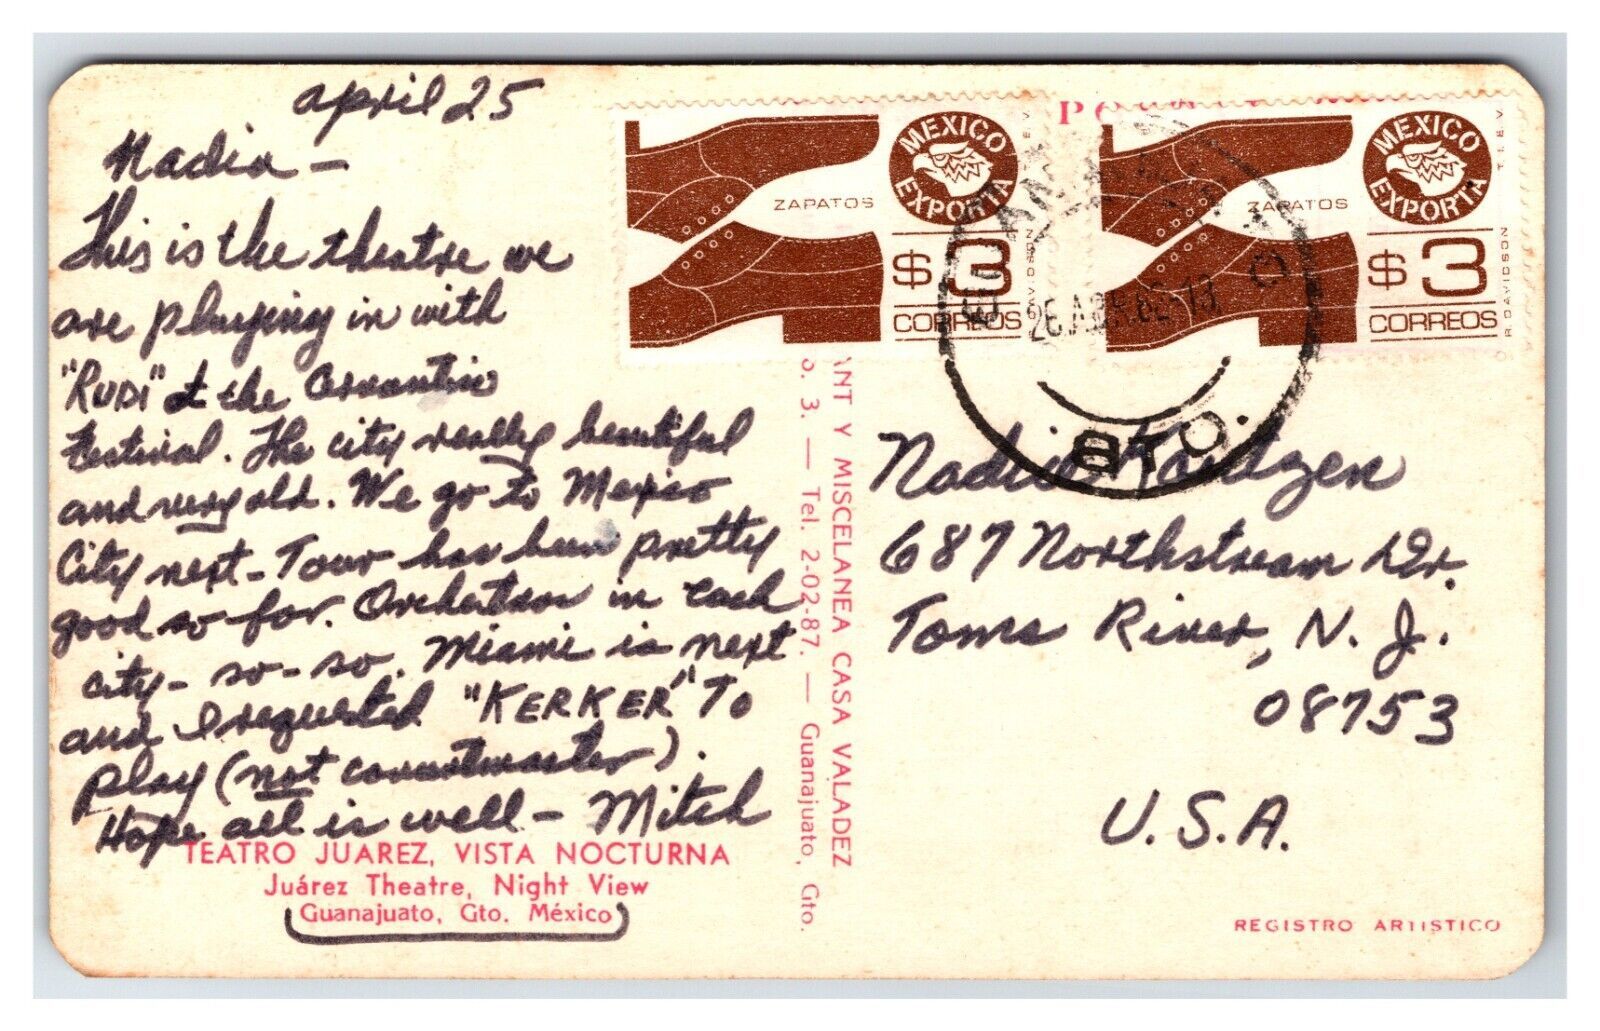 april 25
Nadia -
This is the theatre we
are playing in with
"RUDI" at the Cervantino
Festival. The city really beautiful
and very old. We go to Mexico
City next - Tour has been pretty
good so far. Orchestras in each
city - so - so. Miami is next
and I requested "KERKER" TO
play (not concertmaster).
Hope all is well - Mitch
TEATRO JUAREZ, VISTA NOCTURNA
Juárez Theatre, Night View
Guanajuato, Gto. México
ANT Y MISCELANEA CASA VALADEZ
o. 3. — Tel. 2-02-87. — Guanajuato, Gto.
ZAPATOS
MEXICO
EXPORTA
$3
CORREOS
ZAPATOS
MEXICO
EXPORTA
$3
CORREOS
T.I.E.V.
R DAVIDSON
26 ABR 82-13
GTO.
Nadia
687 Northstream Dr.
Toms River, N. J.
08753
U.S.A.
REGISTRO ARTISTICO